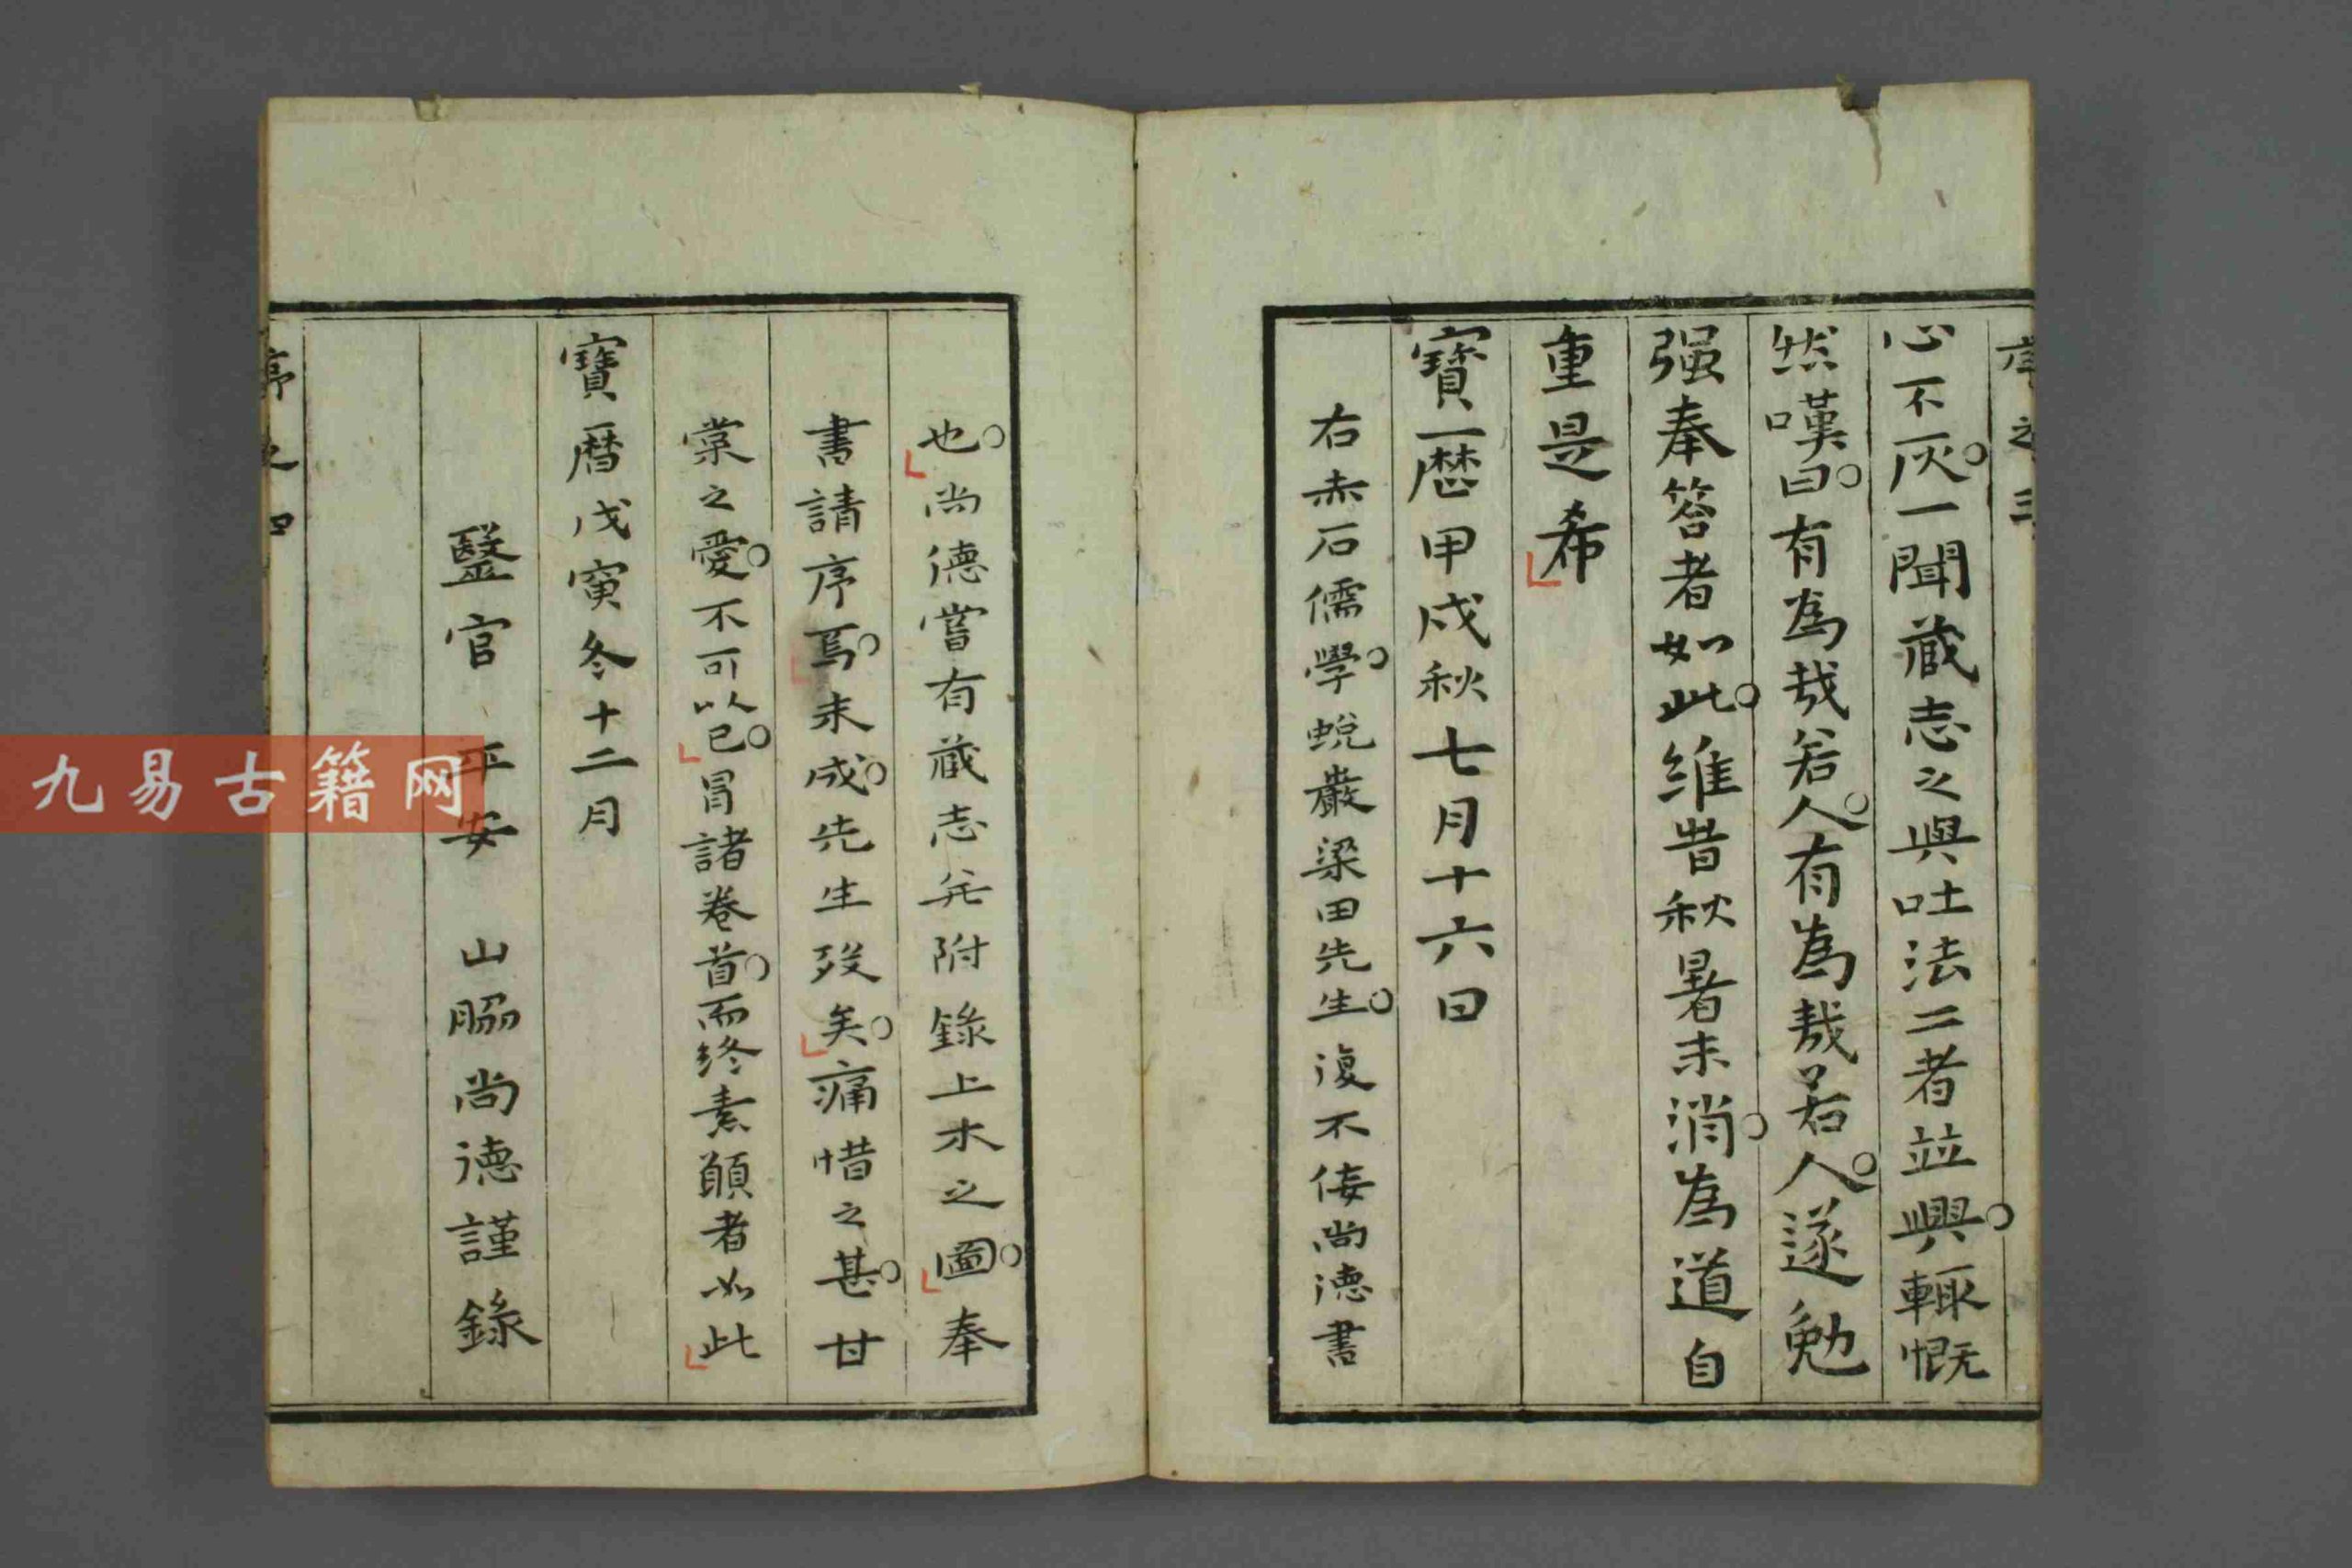 序之三
心不灰一聞蔵志之與吐法二者並興輙慨
然嘆曰有為哉若人有為哉若人遂勉
强奉答者如此維昔秋暑未消為道自
重是希
寶歷甲戌秋七月十六日
右赤石儒學蛻巖梁田先生復不佞尚德書
也尚德嘗有蔵志并附錄上木之圖奉
書請序焉未成先生歿矣痛惜之甚甘
棠之愛不可以已冒諸卷首而終素願者如此
寶暦戊寅冬十二月
醫官 平安 山脇尚德謹錄
序之四
九易古籍网